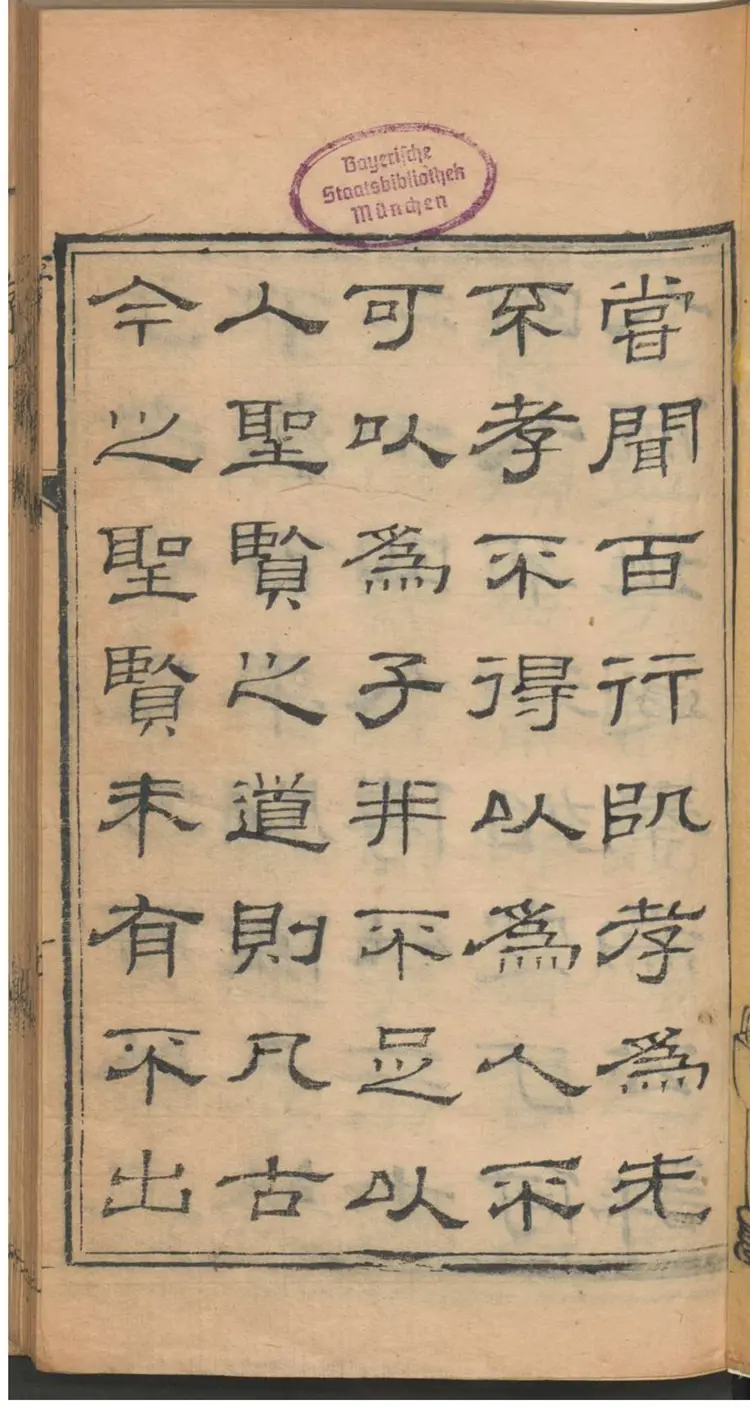 嘗聞百行孝爲先
不孝不得以爲人不
可以爲子非不足以
入聖賢之道則凡古
今之聖賢未有不出
Bayerische
Staatsbibliothek
München